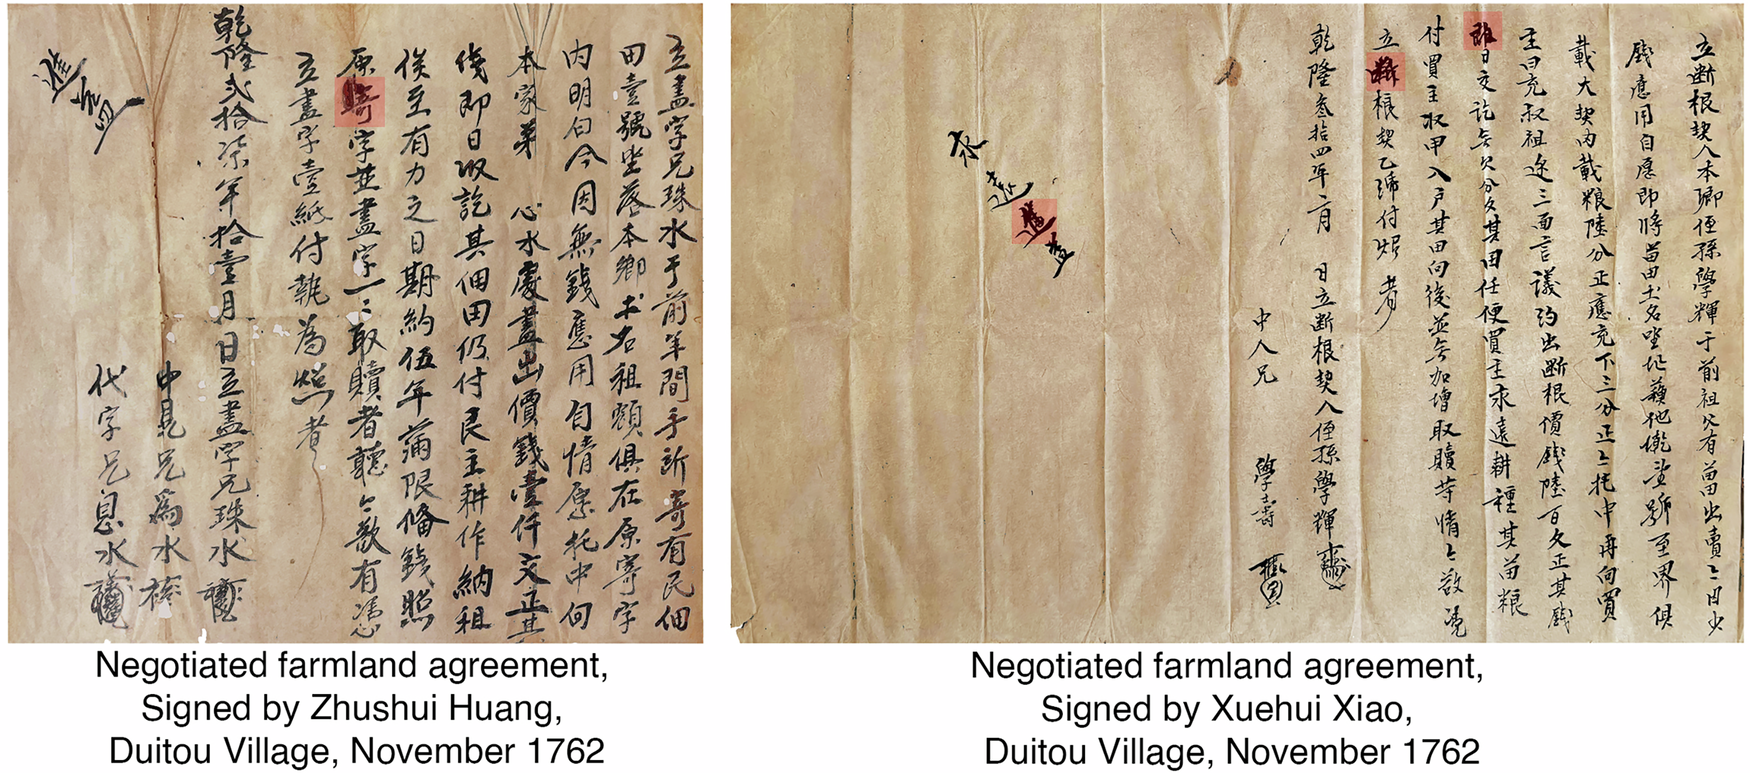 立盡字兄珠水于前年間手所寄有民佃
田壹號坐落本鄉土名租額俱在原寄字
内明白今因無錢應用自情愿托中向
本家弟 心水處盡出價錢壹仟文正其
錢即日收訖其佃田仍付艮主耕作納租
俟至有力之日期約伍年滿限俻錢照
原寄字並盡字一二取贖者聽今欲有憑
立盡字壹紙付執為照者
乾隆貳拾柒年拾壹月日立盡字兄珠水
中見兄為水
代字兄息水
Negotiated farmland agreement,
Signed by Zhushui Huang,
Duitou Village, November 1762
立断根契人本鄉侄孫學輝于前祖父有苗出賣今日少
錢應用自愿即將苗田土名坐址至界俱
載大契内載粮陸分正應充下三分正今托中再向買
主曰充叔祖边三面言議約出断根價錢陸百文正其錢
即日交訖無欠分文其田任便買主永遠耕種其苗粮
付買主收甲入户其田向後並無加增取贖等情今欲憑
立断根契乙紙付炤者
乾隆叁拾四年二月 日立断根契人侄孫學輝
中人兄 學壽
Negotiated farmland agreement,
Signed by Xuehui Xiao,
Duitou Village, November 1762